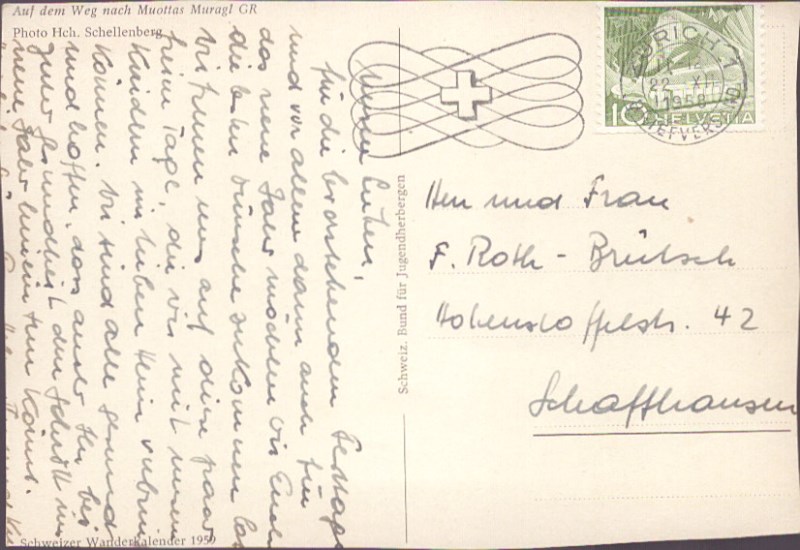 Auf dem Weg nach Muottas Muragl GR
Photo Hch. Schellenberg
Meine Lieben,
für die bevorstehenden Festtage
und vor allem dann auch für
das neue Jahr möchten wir Euch
die besten Wünsche zukommen las
Wir freuen uns auf diese paar
freien Tage, die wir mit unseren
Kindern im lieben Heim verbrin
können. Wir sind alle gesund
und hoffen, dass auch Ihr bei
guter Gesundheit den Schritt ins
neue Jahr hinein tun könnt.
Schweizer Wanderkalender 1959
Schweiz. Bund für Jugendherbergen
ZÜRICH 1
22. XII
1958
BRIEFVERSAND
10 HELVETIA
Herr und Frau
F. Roth - Brütsch
Hohenstoffelstr. 42
Schaffhausen